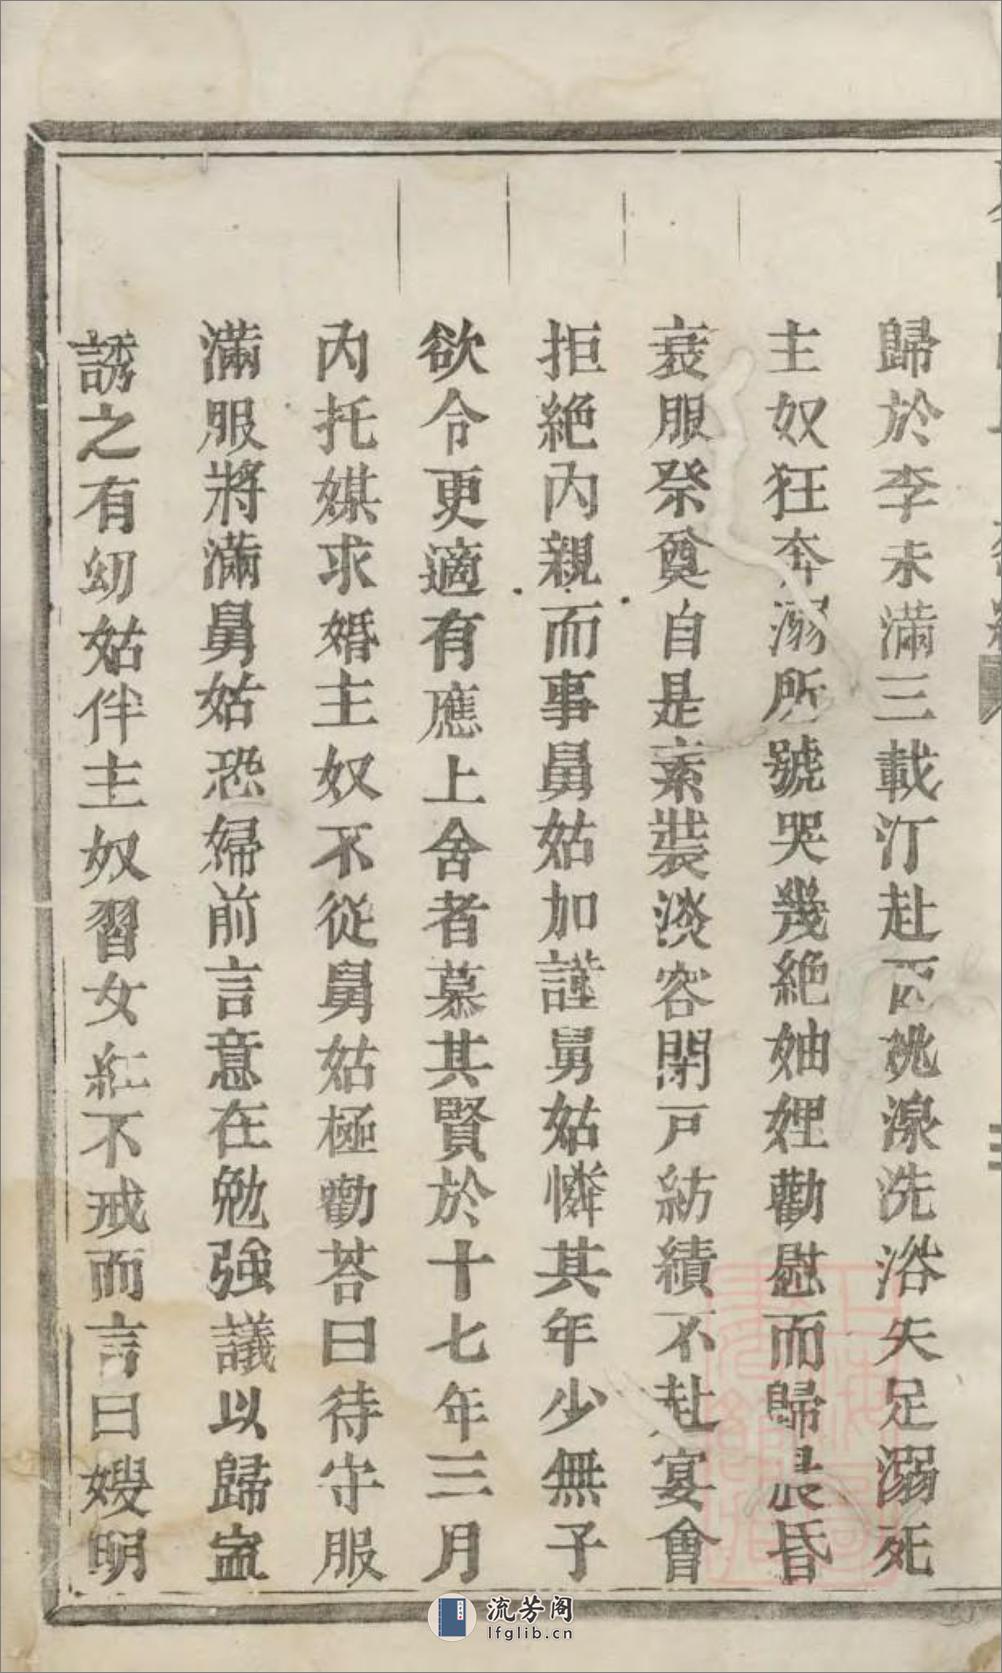 歸於李未滿三載汀赴西姚湶洗浴失足溺死
主奴狂奔溺所號哭幾絶妯娌勸慰而歸晨昏
衰服祭奠自是素裝淡容閉戸紡績不赴宴會
拒絶內親而事舅姑加謹舅姑憐其年少無子
欲令更適有應上舍者慕其賢於十七年三月
內托媒求婚主奴不從舅姑極勸荅曰待守服
滿服將滿舅姑恐婦前言意在勉強議以歸寍
誘之有幼姑伴主奴習女紅不戒而言曰嫂明
流芳阁
lfglib.cn